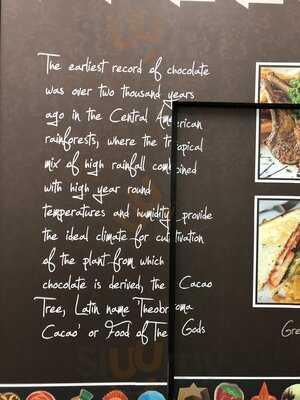 The earliest record of chocolate
was over two thousand years
ago in the Central American
rainforests, where the tropical
mix of high rainfall combined
with high year round
temperatures and humidity provide
the ideal climate for cultivation
of the plant from which
chocolate is derived, the Cacao
Tree, Latin name 'Theobroma
Cacao' or Food of The Gods
Gre